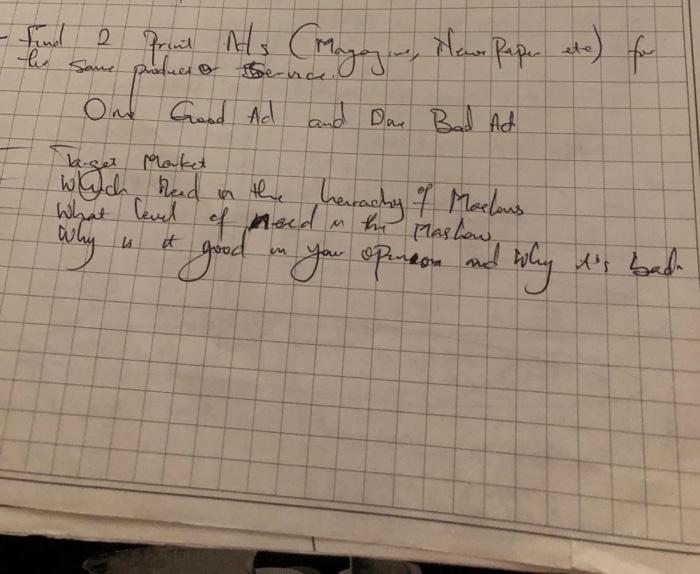 - Find 2 Print Ads (Magazine, News Paper etc) for
the same product or Service.
One Good Ad and One Bad Ad
- Target Market
Which Need in the heirachy of Maslows
What level of need in the Maslow
Why is it good in your opinion and Why it's bad.